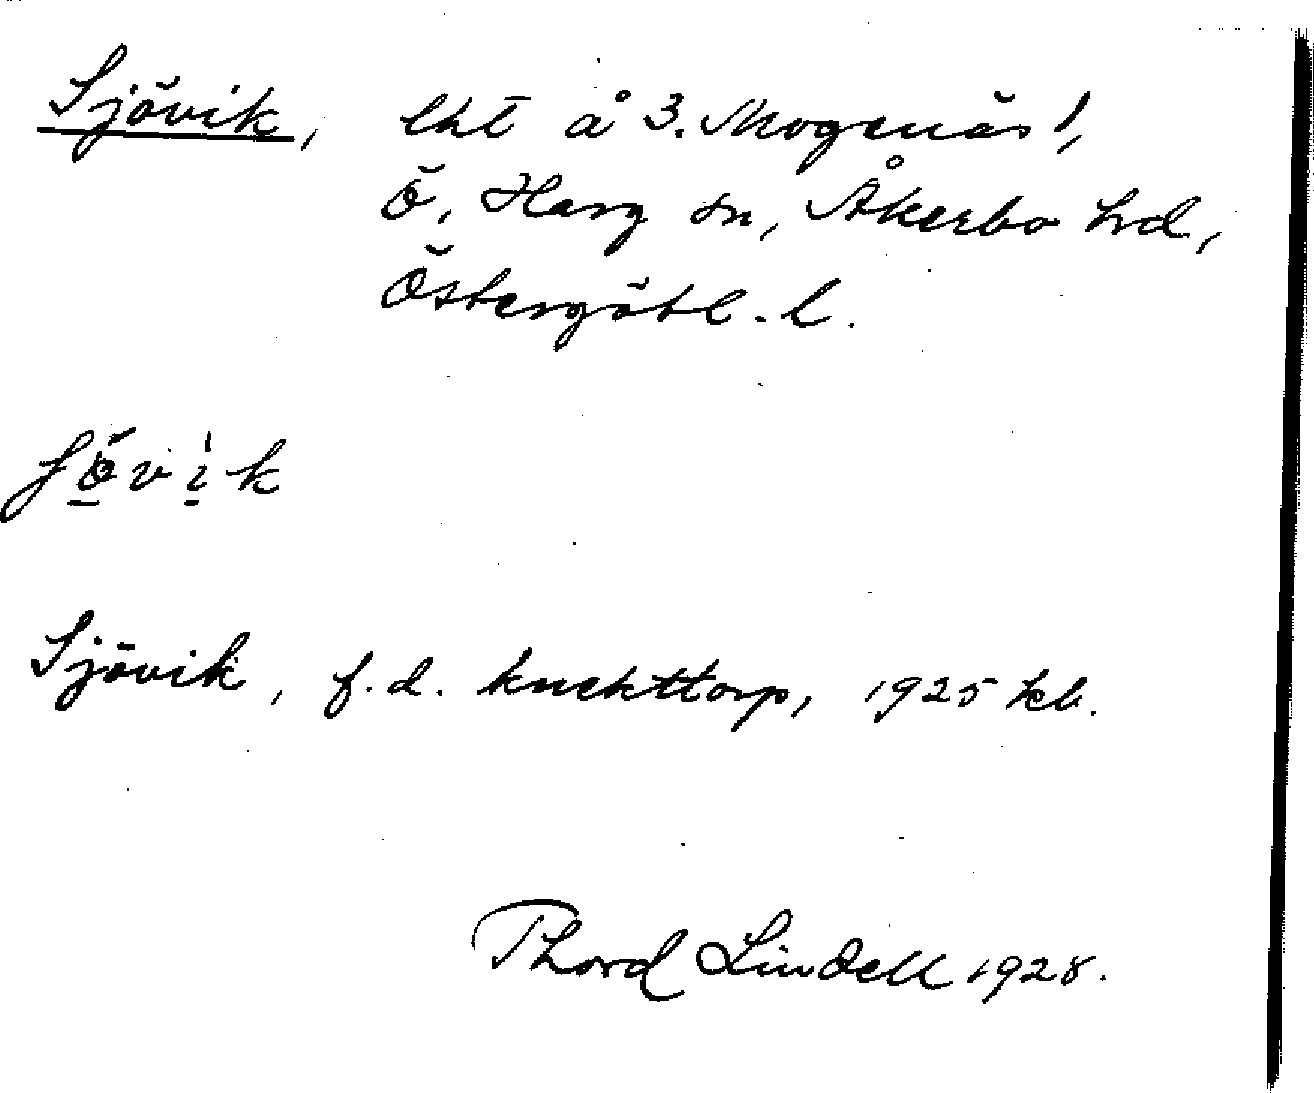 Sjövik, lht å 3. Mogenäs 1,
Ö. Harg sn, Åkerbo hrd,
Östergötl. l.
ʃövik
Sjövik, f.d. knekttorp, 1925 kb.
Thord Lindell 1928.